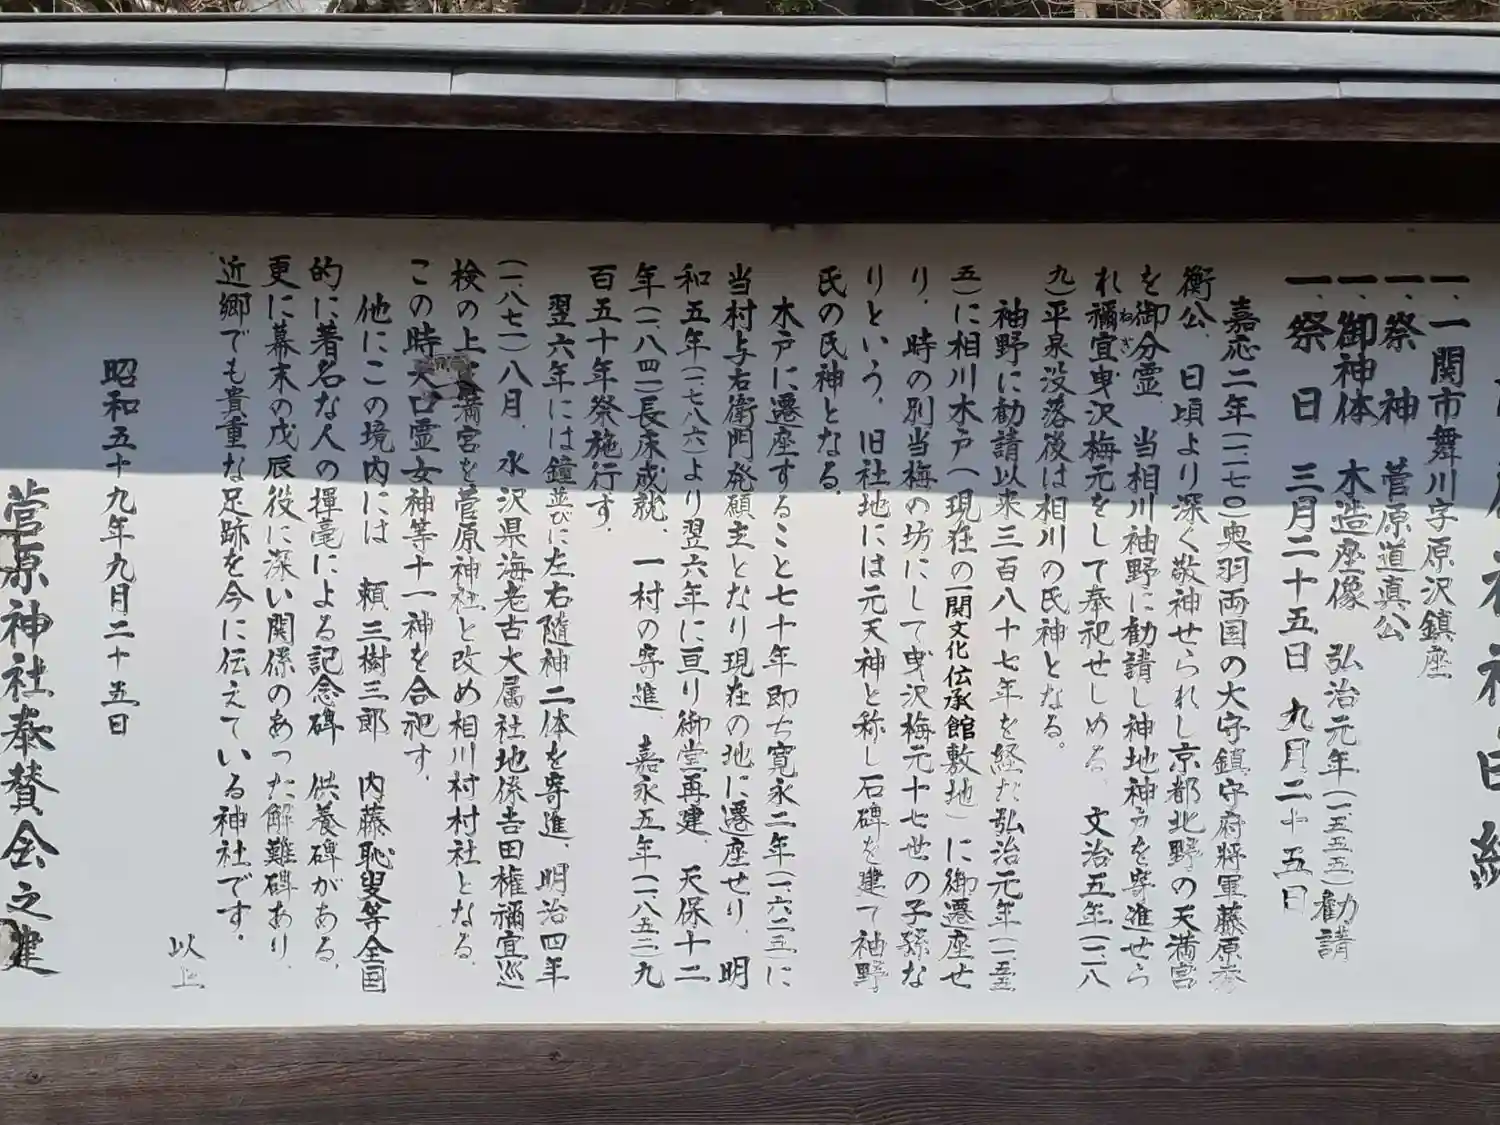 一、一関市舞川字原沢鎮座
一、祭神 菅原道真公
一、御神体 木造座像 弘治元年(一五五五)勧請
一、祭日 三月二十五日 九月二十五日
嘉応二年(一一七〇)奥羽両国の大守鎮守府将軍藤原秀
衡公、日頃より深く敬神せられし京都北野の天満宮
を御分霊、当相川袖野に勧請し神地神戸を寄進せら
れ禰宜曳沢梅元をして奉祀せしめる。文治五年(一一八
ねぎ
九)平泉没落後は相川の氏神となる。
袖野に勧請以来三百八十七年を経た弘治元年(一五五
五)に相川木戸(現在の一関文化伝承館敷地)に御遷座せ
り、時の別当梅の坊にして曳沢梅元十七世の子孫な
りという。旧社地には元天神と称し石碑を建て袖野
氏の氏神となる。
木戸に遷座すること七十年即ち寛永二年(一六二五)に
当村与右衛門発願主となり現在の地に遷座せり、明
和五年(一七八六)より翌六年に亘り御堂再建、天保十二
年(一八四一)長床成就、一村の寄進、嘉永五年(一八五二)九
百五十年祭施行す。
翌六年には鐘並びに左右随神二体を寄進、明治四年
(一八七一)八月、水沢県海老古大属社地係吉田権禰宜巡
検の上、満宮を菅原神社と改め相川村村社となる。
この時天口霊女神等十一神を合祀す。
他にこの境内には 頼三樹三郎 内藤恥叟等全国
的に著名な人の揮毫による記念碑 供養碑がある。
更に幕末の戊辰役に深い関係のあった解難碑あり、
近郷でも貴重な足跡を今に伝えている神社です。
以上
昭和五十九年九月二十五日
菅原神社奉賛会之建